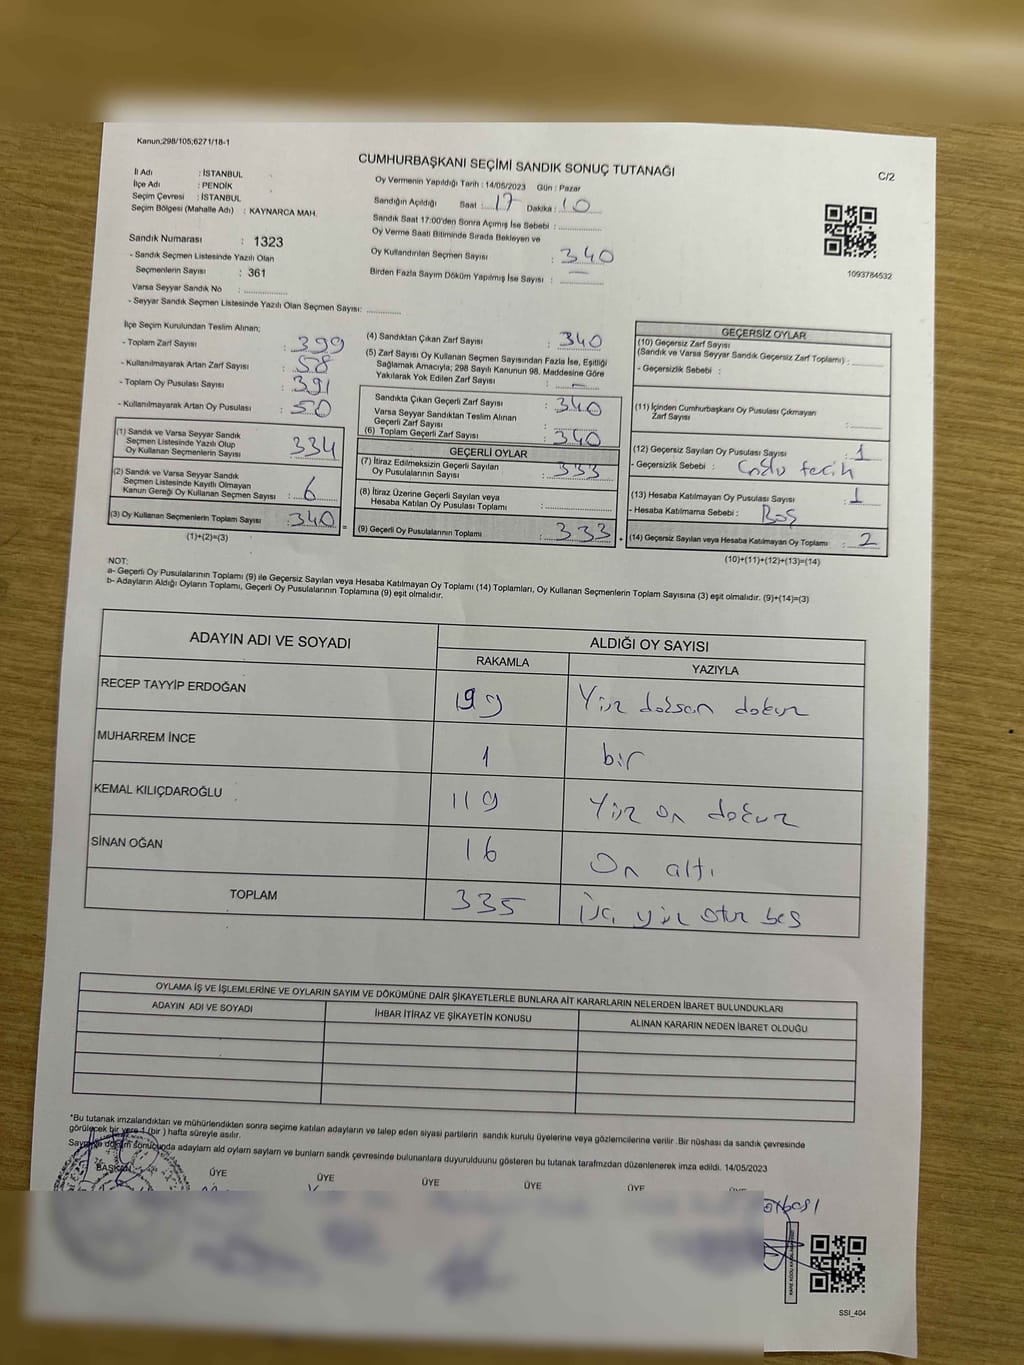 Kanun;298/105;6271/18-1
CUMHURBAŞKANI SEÇİMİ SANDIK SONUÇ TUTANAĞI
C/2
İl Adı : İSTANBUL
İlçe Adı : PENDİK
Seçim Çevresi : İSTANBUL
Seçim Bölgesi (Mahalle Adı) : KAYNARCA MAH.
Sandık Numarası : 1323
- Sandık Seçmen Listesinde Yazılı Olan
Seçmenlerin Sayısı : 361
Varsa Seyyar Sandık No : ................
- Seyyar Sandık Seçmen Listesinde Yazılı Olan Seçmen Sayısı: ................
Oy Vermenin Yapıldığı Tarih : 14/05/2023 Gün : Pazar
Sandığın Açıldığı Saat : 17 Dakika : 10
Sandık Saat 17:00'den Sonra Açımış İse Sebebi : ................
Oy Verme Saati Bitiminde Sırada Bekleyen ve
Oy Kullandırılan Seçmen Sayısı : 340
Birden Fazla Sayım Döküm Yapılmış İse Sayısı : —
1093784532
İlçe Seçim Kurulundan Teslim Alınan;
- Toplam Zarf Sayısı : 399
- Kullanılmayarak Artan Zarf Sayısı : 58
- Toplam Oy Pusulası Sayısı : 391
- Kullanılmayarak Artan Oy Pusulası : 50
(1) Sandık ve Varsa Seyyar Sandık
Seçmen Listesinde Yazılı Olup
Oy Kullanan Seçmenlerin Sayısı : 334
(2) Sandık ve Varsa Seyyar Sandık
Seçmen Listesinde Kayıtlı Olmayan
Kanun Gereği Oy Kullanan Seçmen Sayısı : 6
(3) Oy Kullanan Seçmenlerin Toplam Sayısı : 340 =
(1)+(2)=(3)
(4) Sandıktan Çıkan Zarf Sayısı : 340
(5) Zarf Sayısı Oy Kullanan Seçmen Sayısından Fazla İse, Eşitliği
Sağlamak Amacıyla; 298 Sayılı Kanunun 98. Maddesine Göre
Yakılarak Yok Edilen Zarf Sayısı : —
Sandıkta Çıkan Geçerli Zarf Sayısı : 340
Varsa Seyyar Sandıktan Teslim Alınan
Geçerli Zarf Sayısı
(6) Toplam Geçerli Zarf Sayısı : 340
GEÇERLİ OYLAR
(7) İtiraz Edilmeksizin Geçerli Sayılan
Oy Pusulalarının Sayısı : 333
(8) İtiraz Üzerine Geçerli Sayılan veya
Hesaba Katılan Oy Pusulası Toplamı : ................
(9) Geçerli Oy Pusulalarının Toplamı : 333 +
GEÇERSİZ OYLAR
(10) Geçersiz Zarf Sayısı
(Sandık ve Varsa Seyyar Sandık Geçersiz Zarf Toplamı) : ........
- Geçersizlik Sebebi :
(11) İçinden Cumhurbaşkanı Oy Pusulası Çıkmayan
Zarf Sayısı : ........
(12) Geçersiz Sayılan Oy Pusulası Sayısı : 1
- Geçersizlik Sebebi :
(13) Hesaba Katılmayan Oy Pusulası Sayısı : 1
- Hesaba Katılmama Sebebi : Boş
(14) Geçersiz Sayılan veya Hesaba Katılmayan Oy Toplamı : 2
(10)+(11)+(12)+(13)=(14)
NOT:
a- Geçerli Oy Pusulalarının Toplamı (9) ile Geçersiz Sayılan veya Hesaba Katılmayan Oy Toplamı (14) Toplamları, Oy Kullanan Seçmenlerin Toplam Sayısına (3) eşit olmalıdır. (9)+(14)=(3)
b- Adayların Aldığı Oyların Toplamı, Geçerli Oy Pusulalarının Toplamına (9) eşit olmalıdır.
ADAYIN ADI VE SOYADI
ALDIĞI OY SAYISI
RAKAMLA YAZIYLA
RECEP TAYYİP ERDOĞAN 199 Yüz doksan dokuz
MUHARREM İNCE 1 bir
KEMAL KILIÇDAROĞLU 119 Yüz on dokuz
SİNAN OĞAN 16 On altı
TOPLAM 335 üç yüz otuz beş
OYLAMA İŞ VE İŞLEMLERİNE VE OYLARIN SAYIM VE DÖKÜMÜNE DAİR ŞİKAYETLERLE BUNLARA AİT KARARLARIN NELERDEN İBARET BULUNDUKLARI
ADAYIN ADI VE SOYADI İHBAR İTİRAZ VE ŞİKAYETİN KONUSU ALINAN KARARIN NEDEN İBARET OLDUĞU
*Bu tutanak imzalandıktan ve mühürlendikten sonra seçime katılan adayların ve talep eden siyasi partilerin sandık kurulu üyelerine veya gözlemcilerine verilir .Bir nüshası da sandık çevresinde
görülecek bir yere 1 (bir ) hafta süreyle asılır.
Sayım ve döküm sonucunda adayların aldı oyların sayları ve bunların sandık çevresinde bulunanlara duyurulduunu gösteren bu tutanak tarafmzdan düzenlenerek imza edildi. 14/05/2023
BAŞKAN ÜYE ÜYE ÜYE ÜYE ÜYE ÜYE
SSI_404